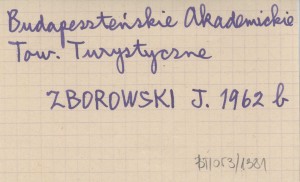 Budapeszteńskie Akademickie
Tow. Turystyczne
ZBOROWSKI J. 1962 b